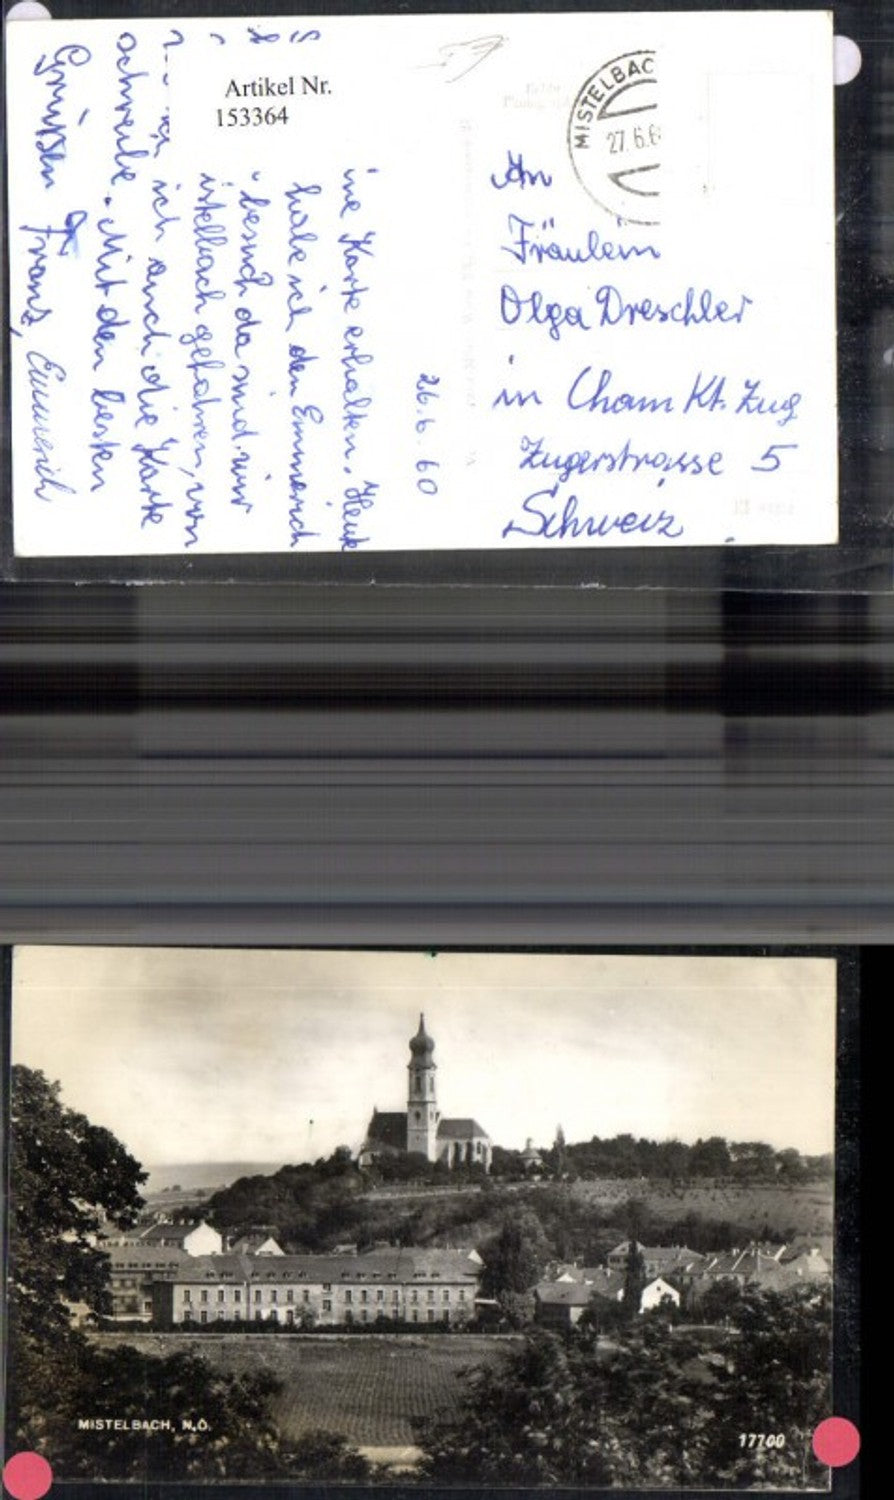 Artikel Nr.
153364
MISTELBAC
27.6.6
26.6.60
ine Karte erhalten. Heute
habe ich den Emmerich
besuch da sind wir
istelbach gefahren, von
ich auch die Karte
schreibe. Mit den besten
Grüßen Franz, Emmerich
An
Fräulein
Olga Dreschler
in Cham Kt. Zug
Zugerstrasse 5
Schweiz
MISTELBACH, N.Ö.
17700